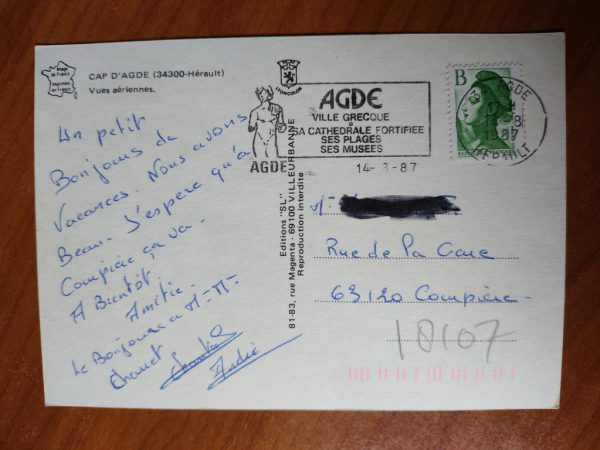 Image
de France
Imprimée en
France
CAP D'AGDE (34300-Hérault)
Vues aériennes.
Un petit
Bonjours de
Vacances. Nous avons
Beau. J'espère qu'à
Courpière ça va.
A Bientôt.
Amitié.
Le Bonjour a M-M-
Chauet
André
Editions "SL"
81-83, rue Magenta - 69100 VILLEURBANNE
Reproduction interdite
AGDE
AGDE
VILLE GRECQUE
SA CATHEDRALE FORTIFIEE
SES PLAGES
SES MUSEES
14-8-87
B
AGDE
87
HERAULT
M-
Rue de la Gare
63120 Courpière-
18107